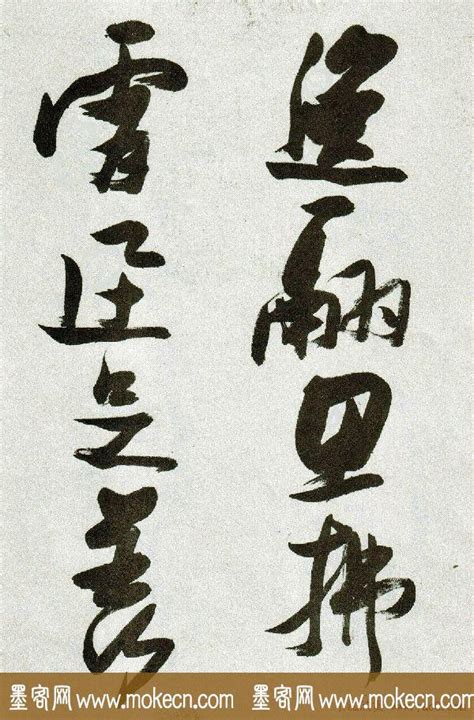 逸翮思拂
霄迅足羨
墨客网 www.mokecn.com 墨客网 www.mokecn.com